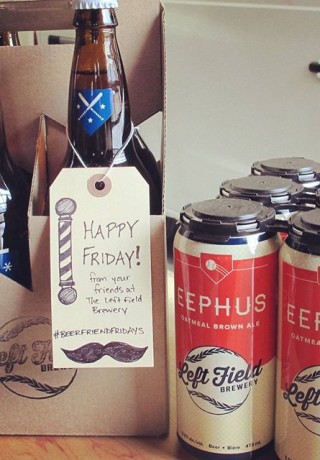 HAPPY
FRIDAY!
from your
friends at
The Left Field
Brewery
#BEERFRIENDFRIDAYS
Left Field
BREWERY
EEPHUS
OATMEAL BROWN ALE
Left Field
BREWERY
Beer • Bière 473 mL
EEP
OATMEA
Left
BR